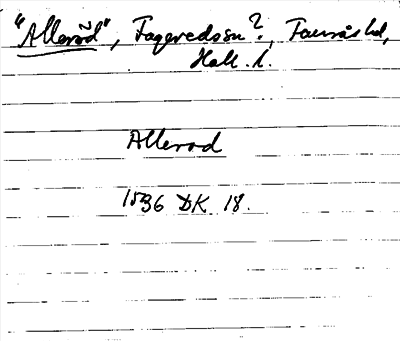 "Allerød", Fageredssn?, Faurås hd,
Hall. l.
Allerod
1536 DK 18.